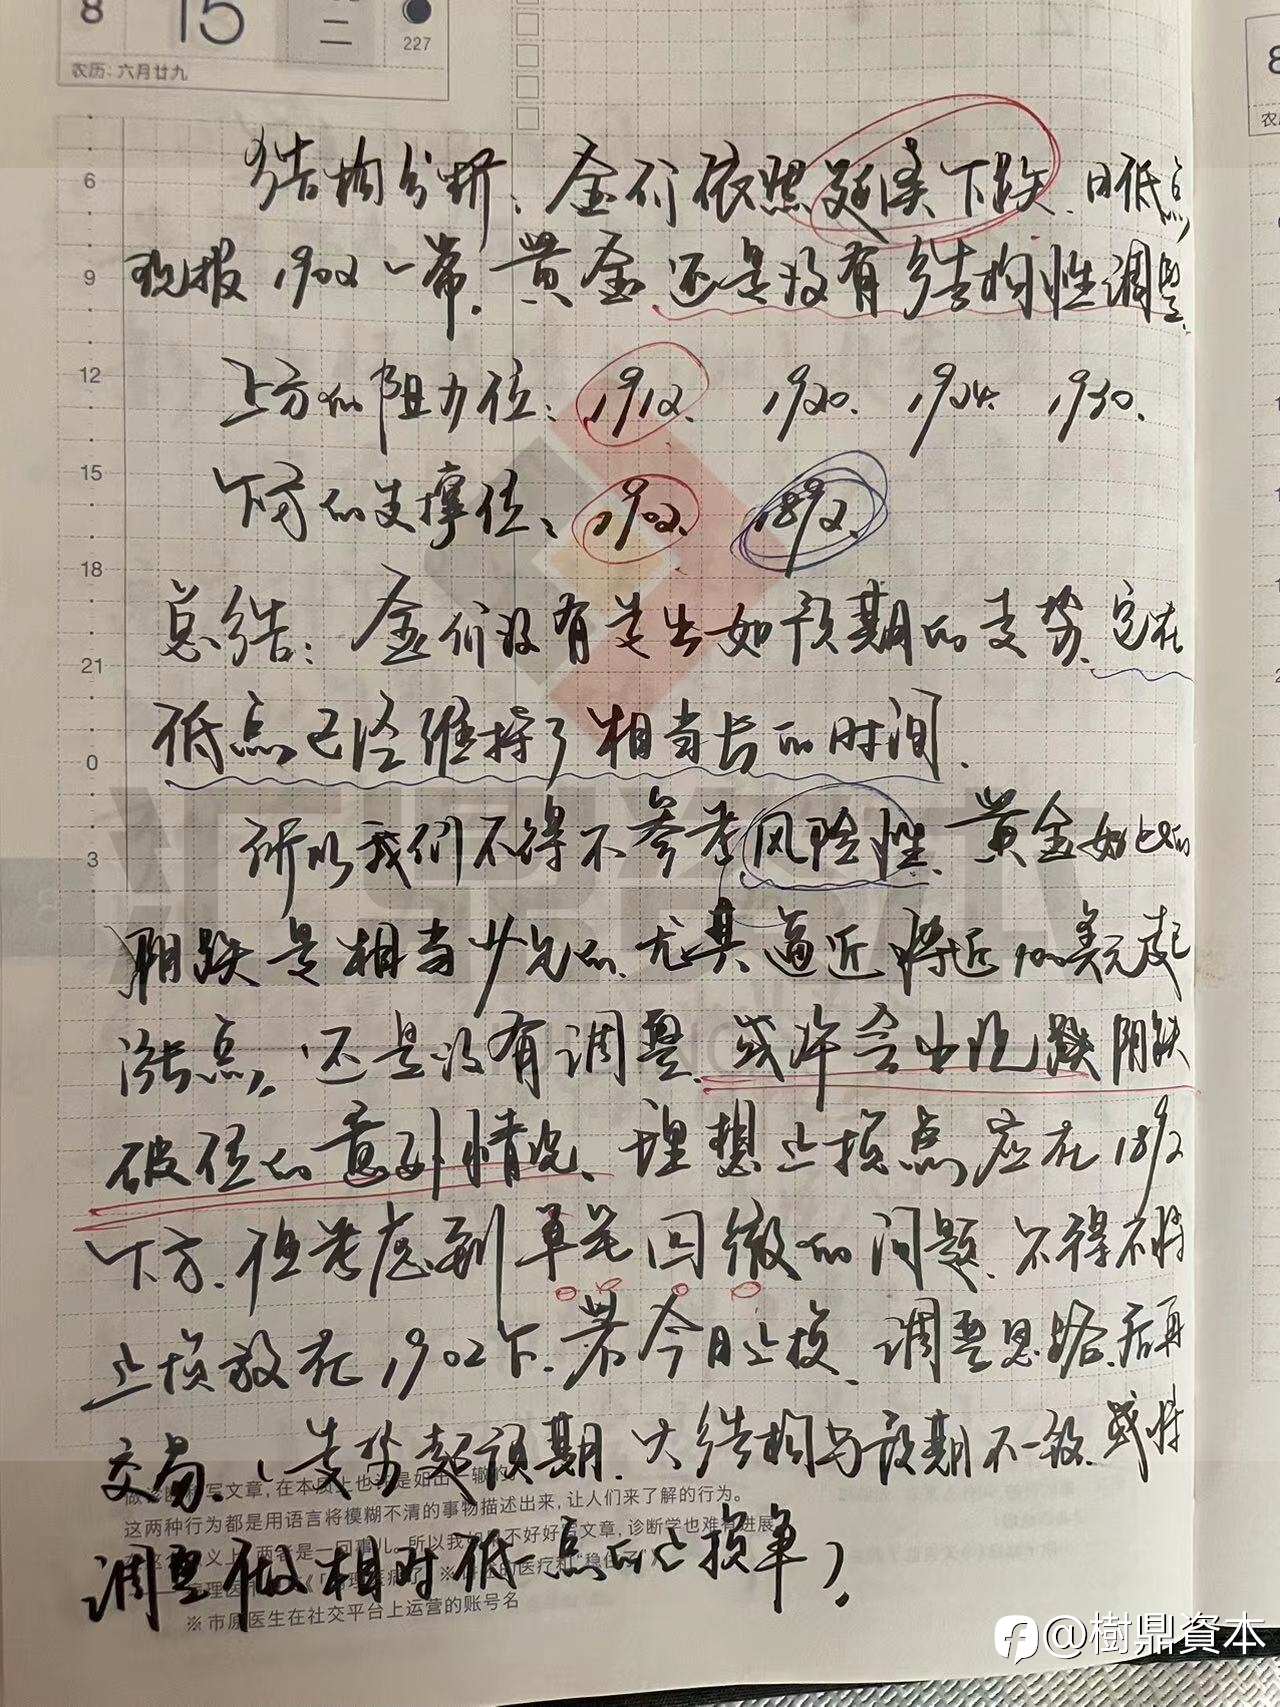 8 15 二
227
农历:六月廿九
结构分析:金价依然延续下跌.日低点
现报1902一带.黄金还是没有结构性调整.
上方的阻力位:1912. 1920. 1924. 1930.
下方的支撑位:1902. 1892.
总结:金价没有走出如预期的走势.它在
低点已经维持了相当长的时间.
所以我们不得不参考风险性.黄金如此的
阴跌是相当少见的.尤其逼近将近100美元起
涨点.还是没有调整.或许会出现跌阴跌
破位的意外情况.理想止损点应在1892
下方.但考虑到单笔回撤的问题.不得不将
止损放在1902下.若今日止损.调整思路.后再
交易.(走势超预期.大结构与预期不一致.或将
调整做相对低一点的止损单).
6
9
12
15
18
21
0
3
写文章,在本质上也
这两种行为都是用语言将模糊不清的事物描述出来,让人们来了解的行为。
※市原医生在社交平台上运营的账号名
汇鼎资本
@樹鼎資本